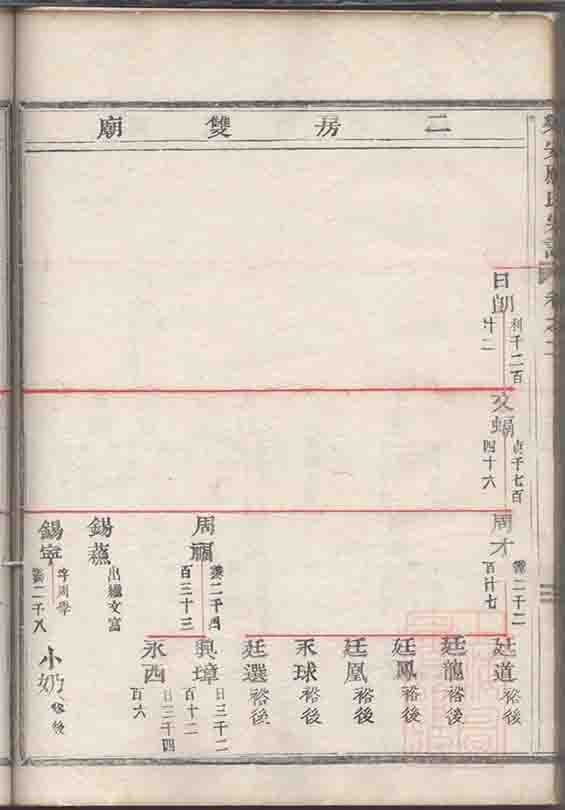 二房雙廟
卷之二
日朗
利千二百
廿二
文蝠
貞千七百
四十六
周才
百廿七
周福
二千四
百三十三
錫蕃
出繼文富
錫寧
字周學
二千八
廷道
裕後
廷龍
裕後
廷鳳
裕後
廷凰
裕後
永球
裕後
廷選
裕後
興璋
日三千二
百十二
永西
日三千四
百六
小奶
裕後